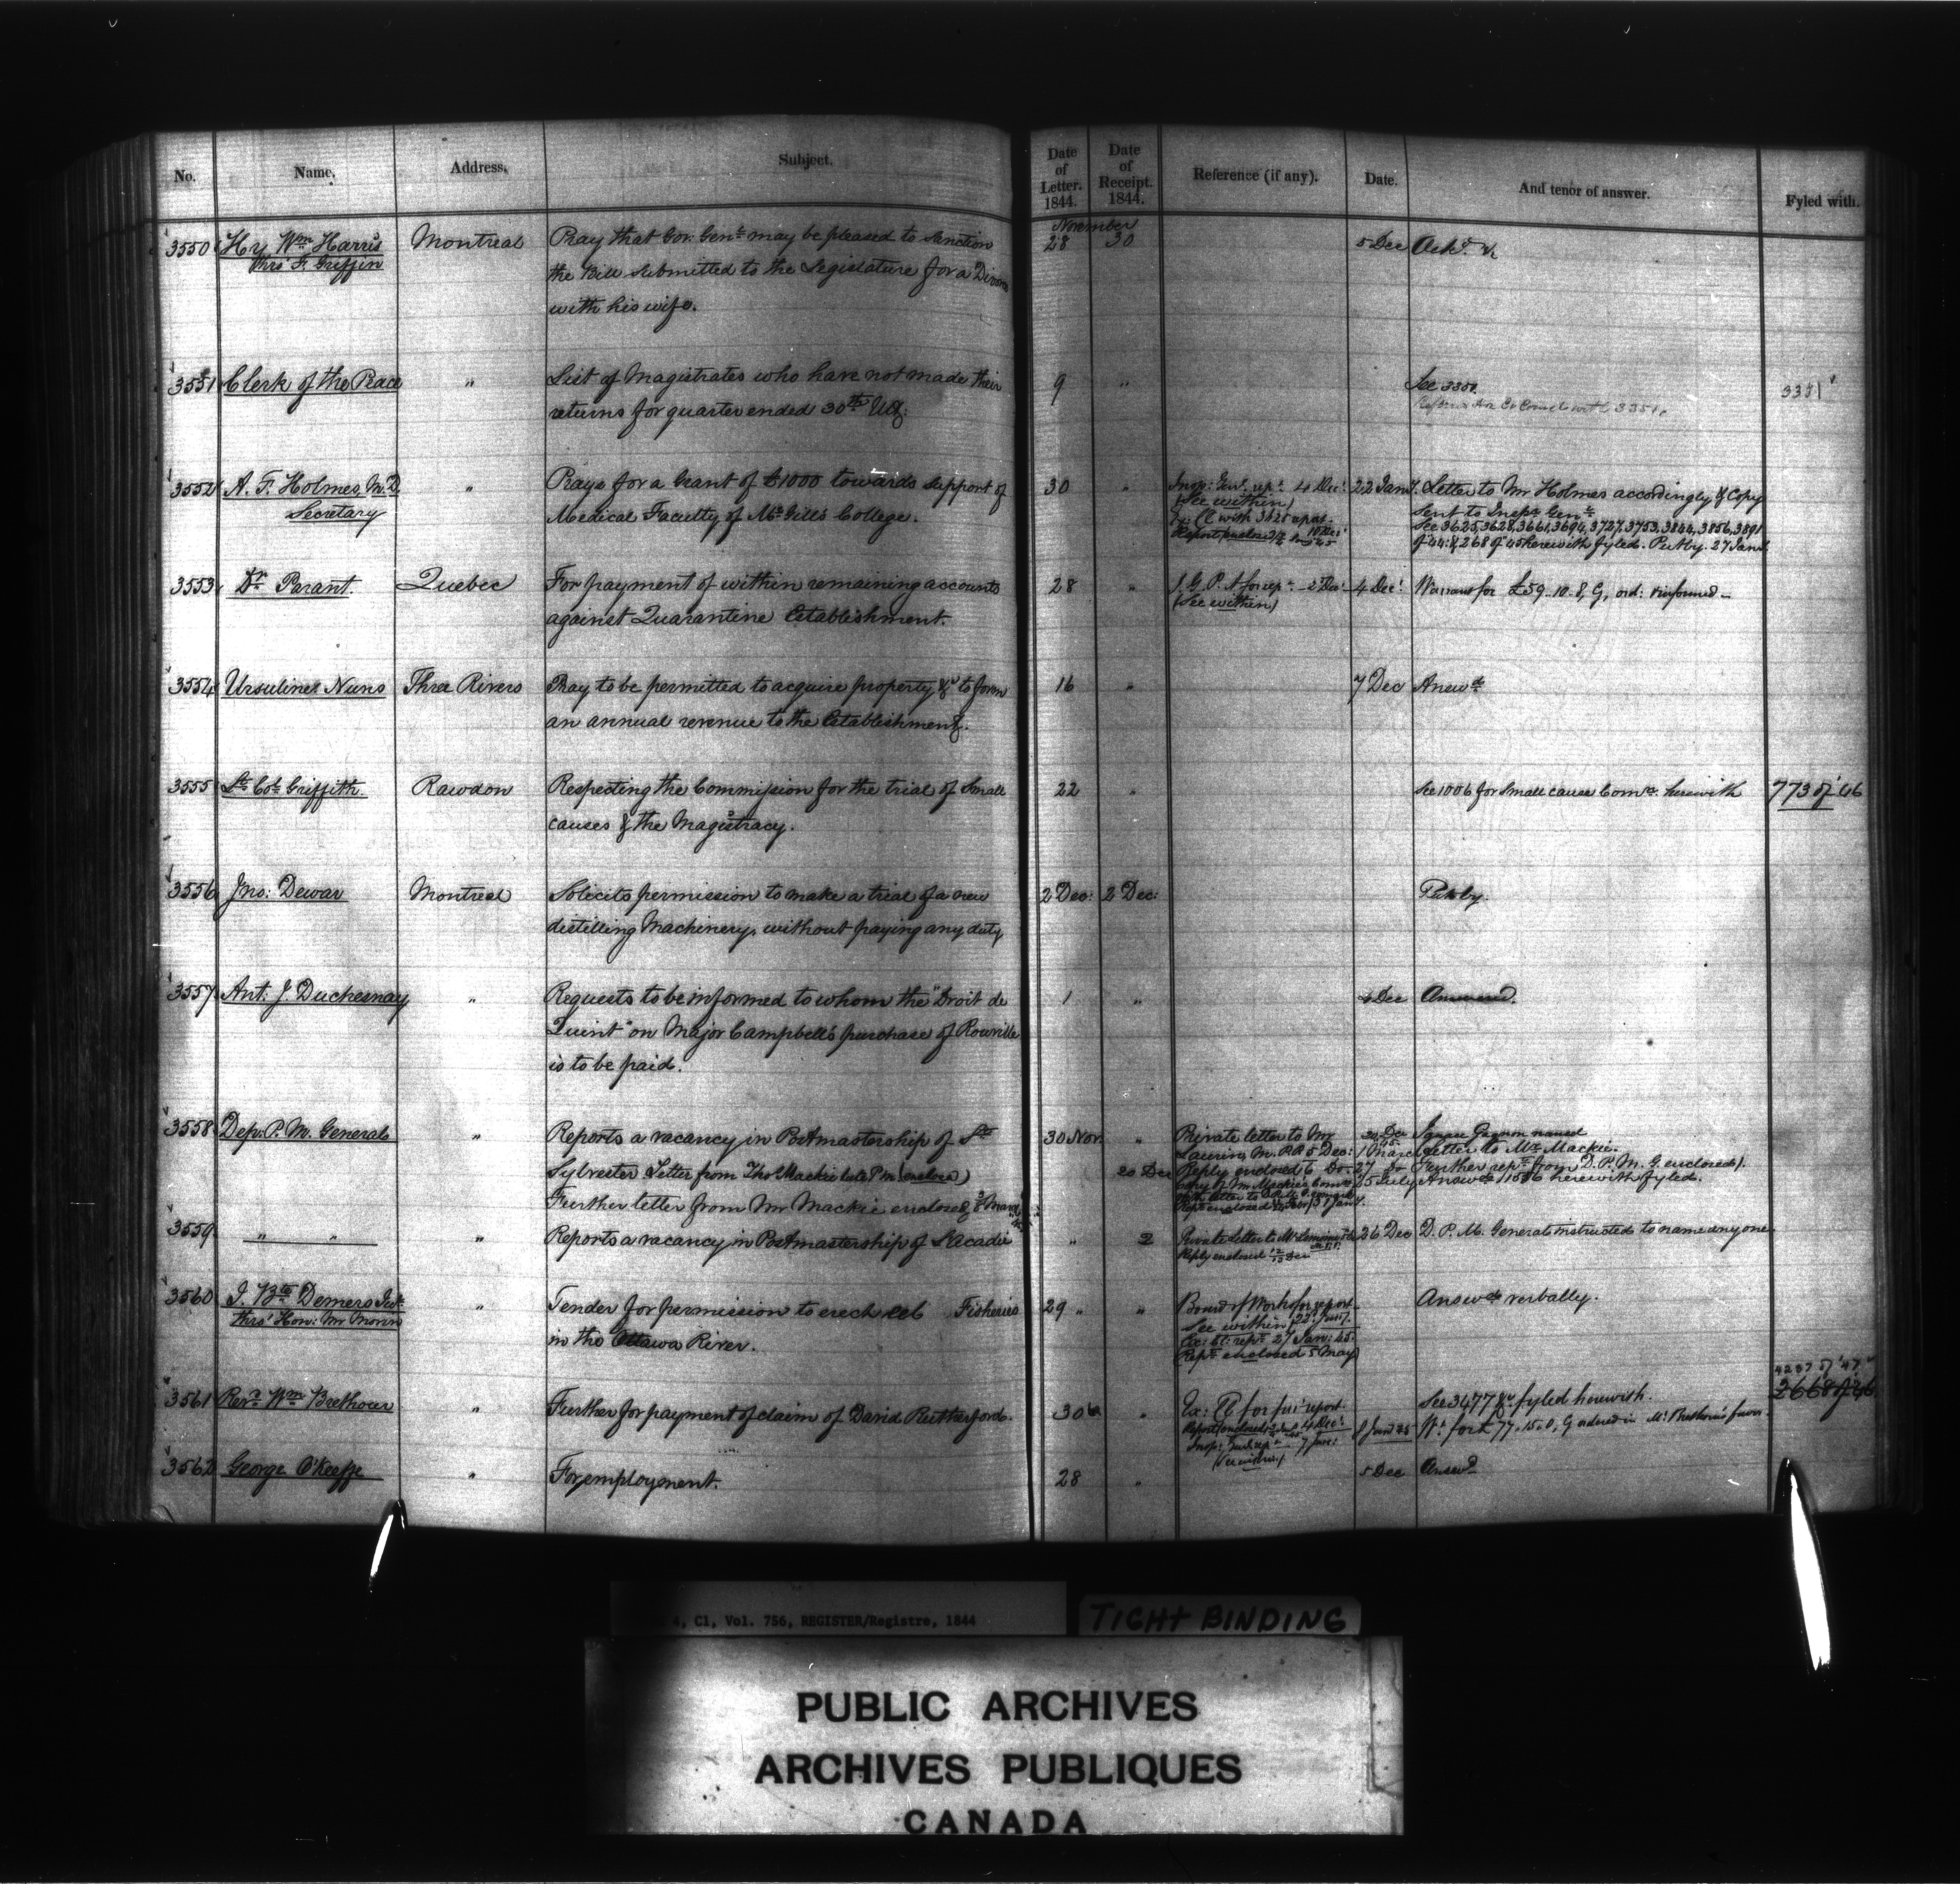 No. Name. Address. Subject. Date of Letter. 1844. Date of Receipt. 1844. Reference (if any). Date. And tenor of answer. Fyled with.
November
3550 Hy Wm Harris Montreal Pray that Gov: Genl: may be pleased to sanction 28 30 5 Dec
thro' F. Griffin the Bill submitted to the Legislature for a Divorce
with his wife.
3551 Clerk of the Peace " List of Magistrates who have not made their 9 " See 3351 3351
returns for quarter ended 30th Ult:
3552 A. F. Holmes M.D. " Prays for a Grant of £1000 towards support of 30 " Insp: Genl. rept. 4 Dec: 22 Jany. Letter to Mr Holmes accordingly & Copy
Secretary Medical Faculty of McGill's College. (See within) sent to Inspr Genl
See 3625, 3628, 3661, 3694, 3727, 3753, 3844, 3856, 3891
of 44: & 268 of 45 herewith fyled. Put by. 27 Jany
3553 Dr Parant. Quebec For payment of within remaining accounts 28 " I. G. P. A for rept. 2 Dec: 4 Dec: Warrant for £59-10-8, G, ord: & informed-
against Quarantine Establishment. (See within)
3554 Ursuline Nuns Three Rivers Pray to be permitted to acquire property &c to form 16 " 7 Dec Answd
an annual revenue to the Establishment.
3555 Lt Col Griffith. Rawdon Respecting the Commission for the trial of Small 22 " See 1006 for small cause Comrs. herewith 773 of '46
causes & the Magistracy.
3556 Jno: Dewar Montreal Solicits permission to make a trial of a new 2 Dec: 2 Dec: Put by.
distilling Machinery, without paying any duty
3557 Ant: J. Duchesnay " Requests to be informed to whom the "Droit de 1 " 4 Dec Answered.
Quint" on Major Campbell's purchase of Rouville
is to be paid.
3558 Dep: P. M. General " Reports a vacancy in Postmastership of St 30 Nov. " Private letter to Mr Gagnon named
Laurin, M.P.P. 5 Dec: 1 March Letter to Mr Mackie.
Sylvester Letter from Tho Mackie late P.M (enclosed) 20 Dec Reply enclosed 6 Do- 27 Do Further rept from D. P. M. G. enclosed).
5 July Answd 1516 herewith fyled.
Further letter from Mr Mackie enclosed
3559 " " " Reports a vacancy in Postmastership of L'Acadie " 2 Private Letter to Mr 26 Dec D. P. M. General instructed to name any one
Reply enclosed
3560 J. Bte Demers " Tender for permission to erect eel Fisheries 29 " " Board of Works for report Answd verbally.
thro' Hon: Mr Morin in the Ottawa River. See within 22 Jany.
Ex: Cl: rept 27 Jan: 45.
Rept enclosed 5 May
4237 of '47
3561 Revd Wm Brethour " Further for payment of claim of David Rutherford. 30 " Ex: Cl for fur: report See 3477 &c fyled herewith. 2668 of 46
Wt for £77.15.0, G ordered in Mr Brethour's favor.
3562 George O'Keeffe " For employment. 28 " 5 Dec Answd
4, C1, Vol. 756, REGISTER/Registre, 1844
TIGHT BINDING
PUBLIC ARCHIVES
ARCHIVES PUBLIQUES
CANADA